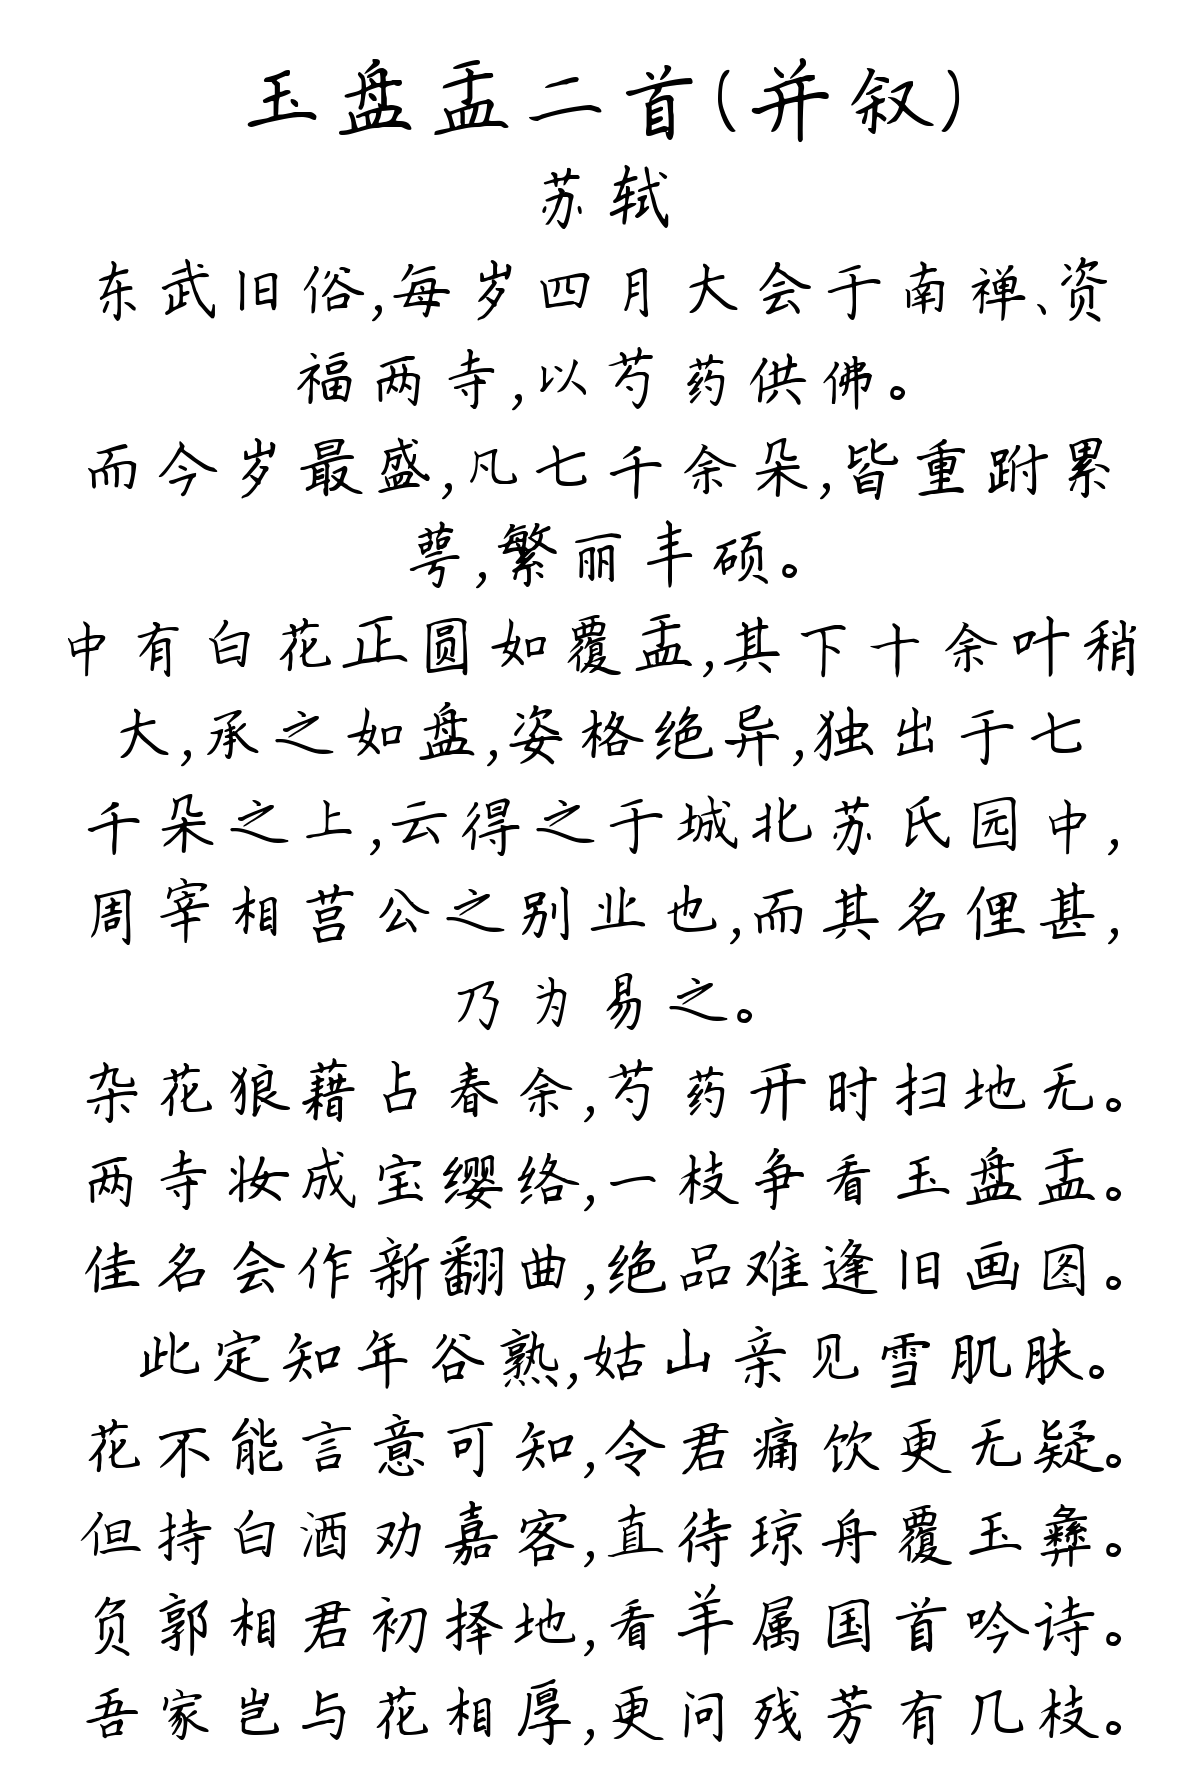 玉盘盂二首(并叙)
苏轼
东武旧俗,每岁四月大会于南禅、资
福两寺,以芍药供佛。
而今岁最盛,凡七千余朵,皆重跗累
萼,繁丽丰硕。
中有白花正圆如覆盂,其下十余叶稍
大,承之如盘,姿格绝异,独出于七
千朵之上,云得之于城北苏氏园中,
周宰相莒公之别业也,而其名俚甚,
乃为易之。
杂花狼藉占春余,芍药开时扫地无。
两寺妆成宝缨络,一枝争看玉盘盂。
佳名会作新翻曲,绝品难逢旧画图。
此定知年谷熟,姑山亲见雪肌肤。
花不能言意可知,令君痛饮更无疑。
但持白酒劝嘉客,直待琼舟覆玉彝。
负郭相君初择地,看羊属国首吟诗。
吾家岂与花相厚,更问残芳有几枝。